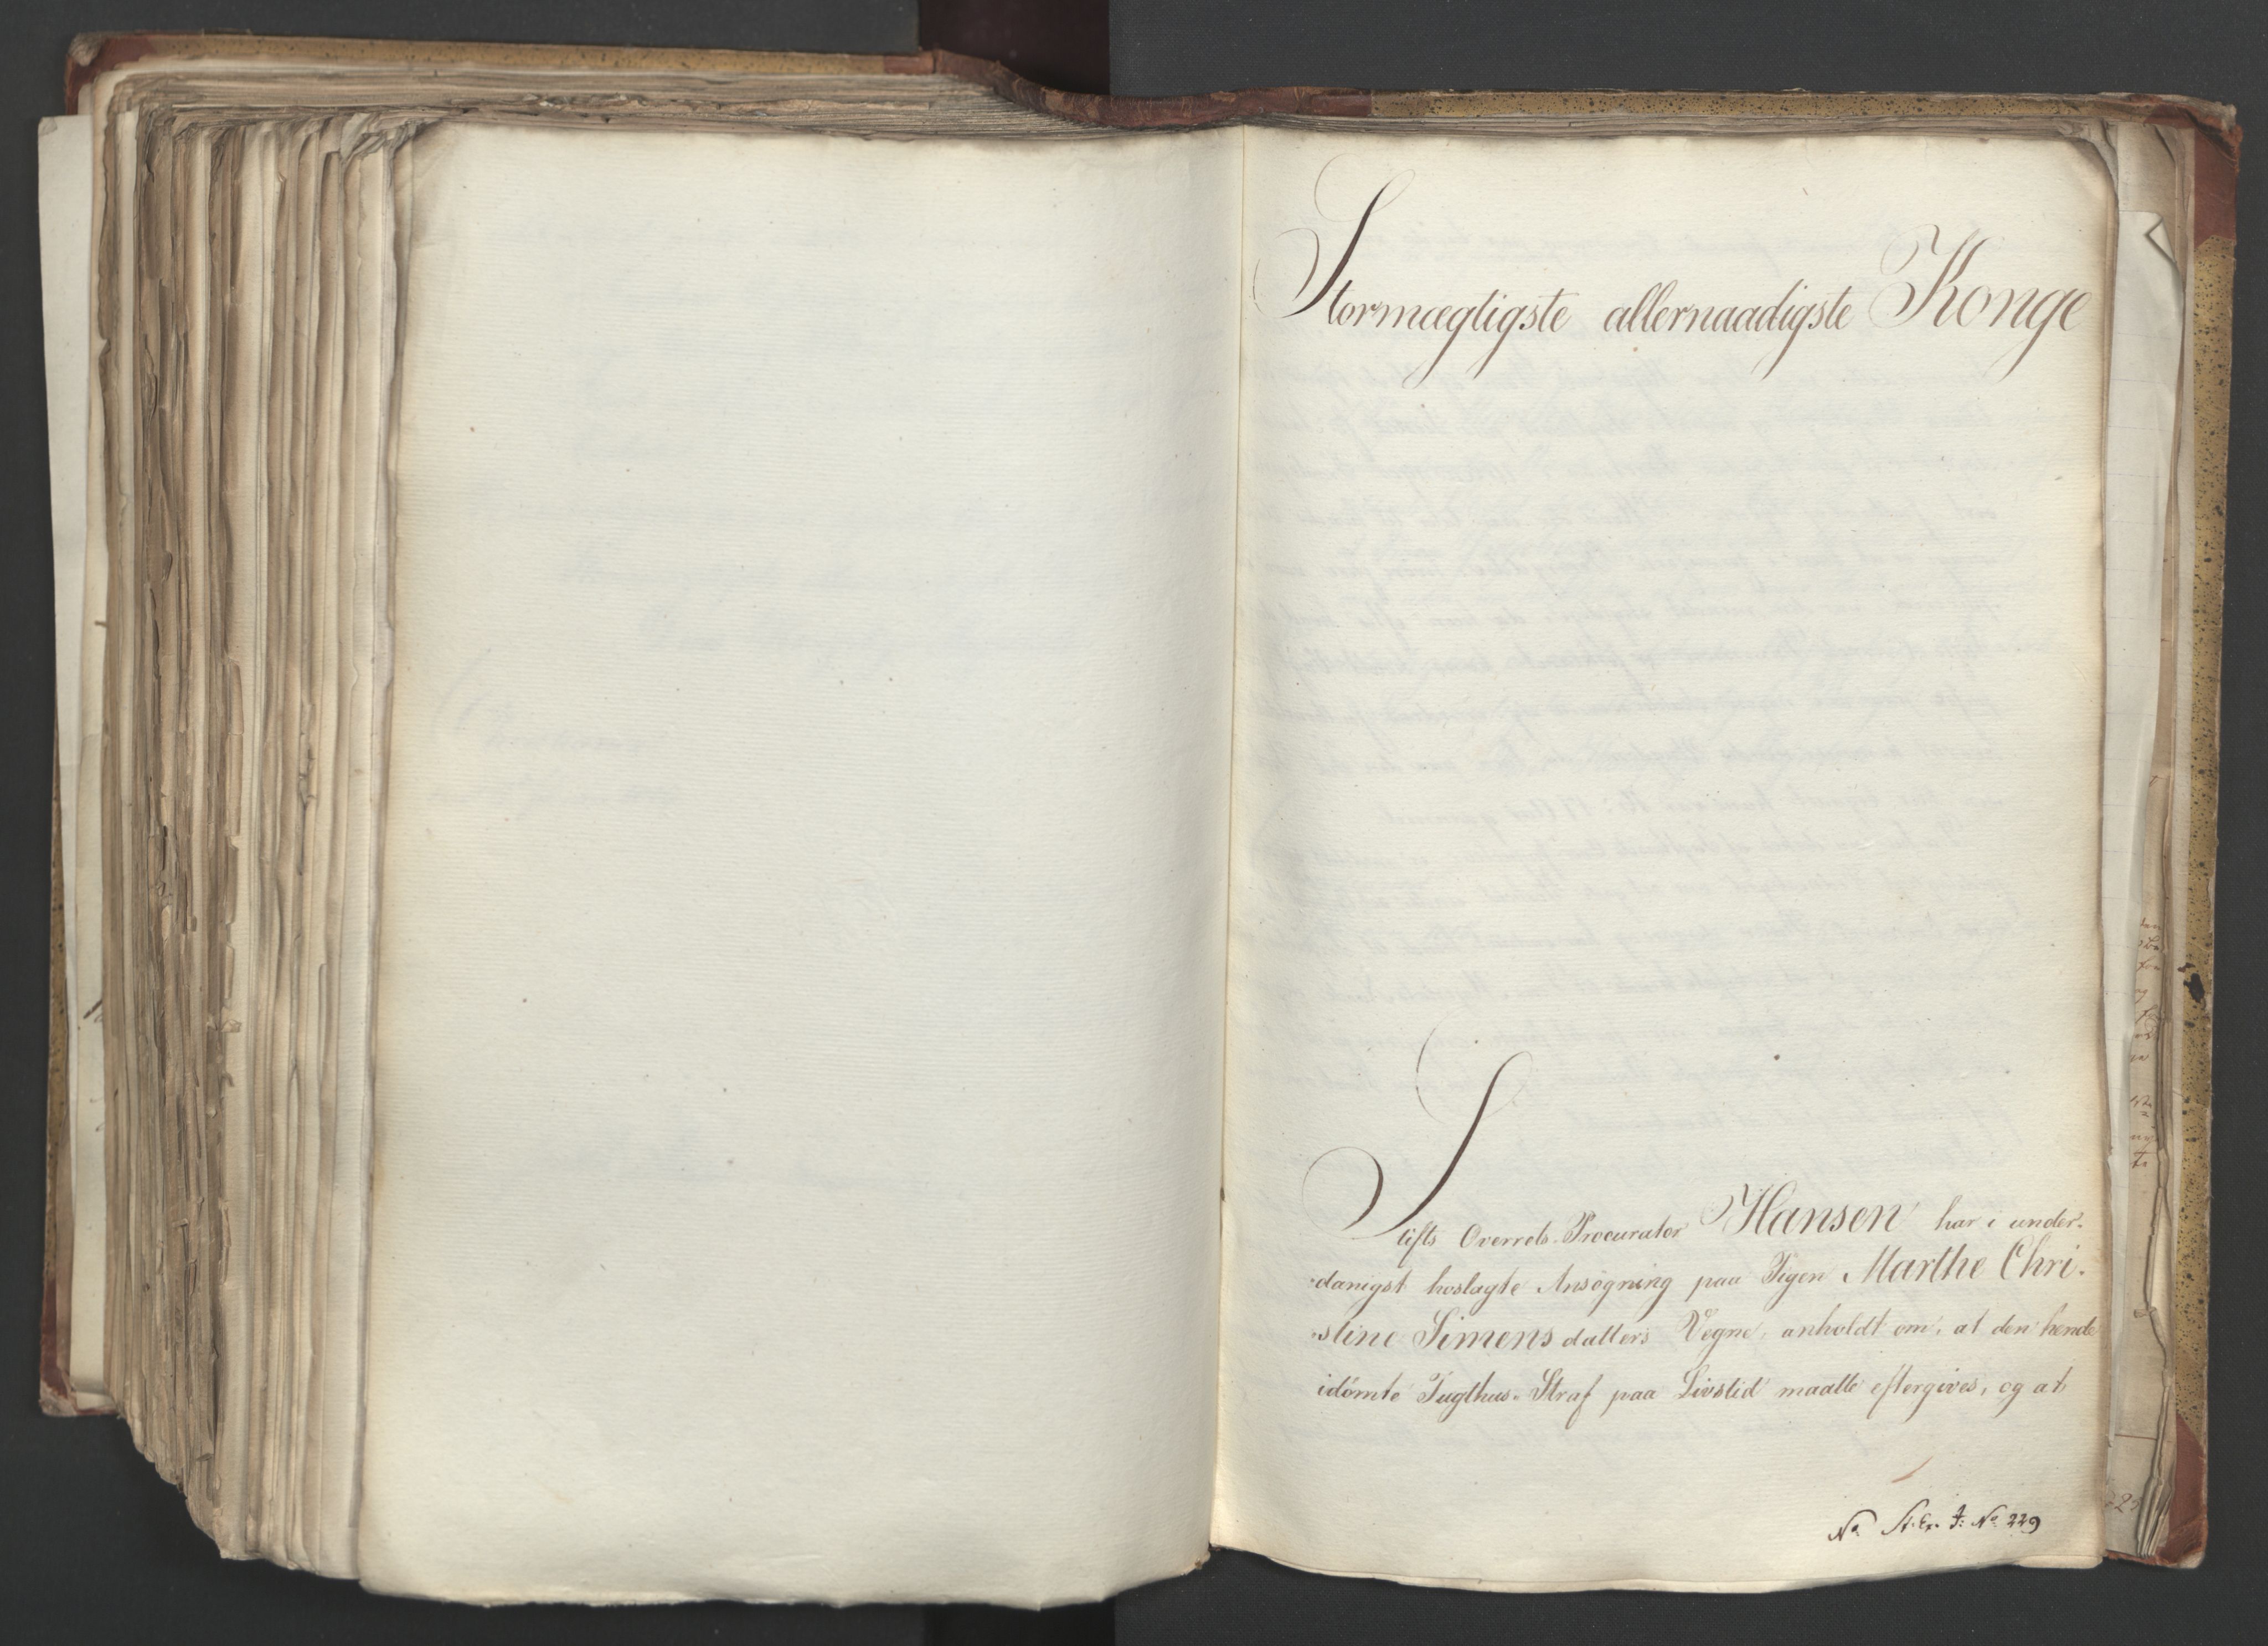 Stormægtigste allernaadigste Konge
Stifts Overrets-Procurator Hansen har i under-
danigst hoslagte Ansøgning paa Pigen Marthe Chri-
stine Simensdatters Vegne, anholdt om, at den hende
idømte Tugthus-Straf paa Livstid maatte eftergives, og at
No St. Ex. J: No 229